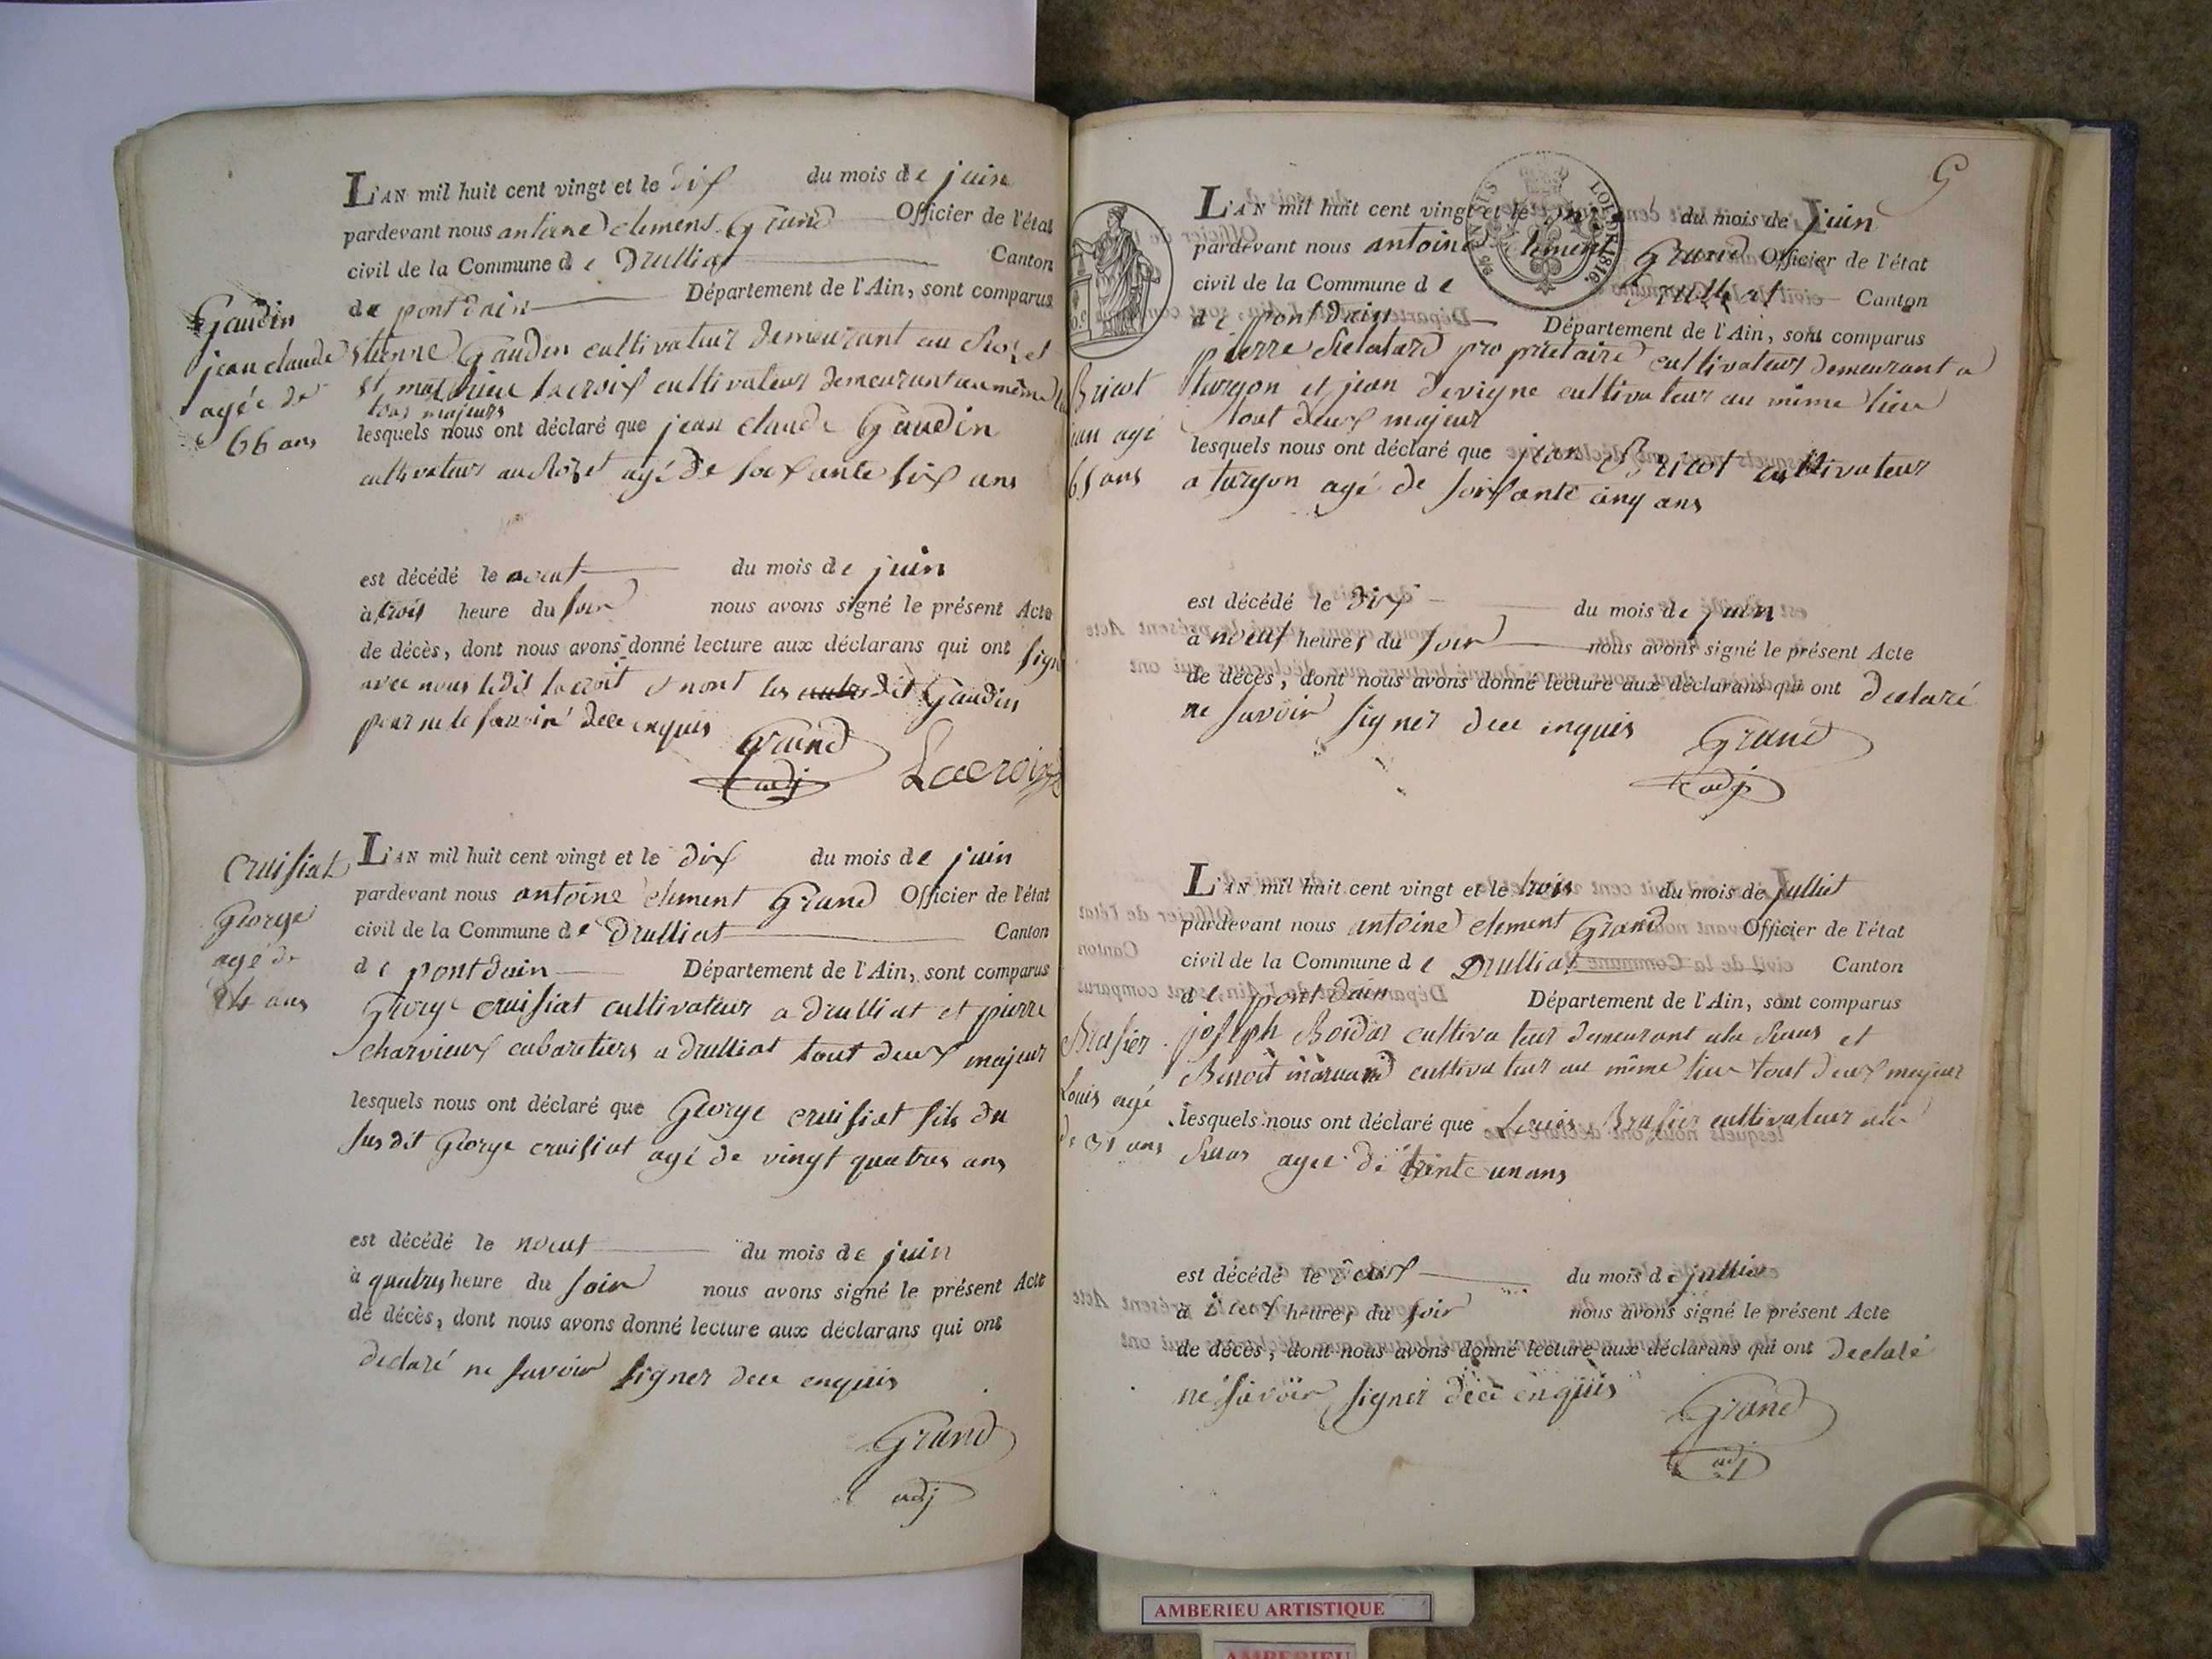 Gaudin
jean claude
agée de
66 ans
L'AN mil huit cent vingt et le dix du mois de juin
pardevant nous antoine clement Grand Officier de l'état
civil de la Commune de Drulliat Canton
de pontdain Département de l'Ain, sont comparus
etienne Gaudin cultivateur demeurant au
et mathieu lacroix cultivateur demeurant au même
tous majeurs
lesquels nous ont déclaré que jean claude Gaudin
cultivateur au agé de soixante six ans
est décédé le neuf du mois de juin
à trois heure du soir nous avons signé le présent Acte
de décès, dont nous avons donné lecture aux déclarans qui ont signé
avec nous ledit lacroix et non ledit Gaudin
pour ne le savoir de ce enquis
Grand
adj
Lacroix
Cruisiat
George
agé de
24 ans
L'AN mil huit cent vingt et le dix du mois de juin
pardevant nous antoine clement Grand Officier de l'état
civil de la Commune de Drulliat Canton
de pontdain Département de l'Ain, sont comparus
George cruisiat cultivateur a drulliat et pierre
charvieux cabaretiers a drulliat tout deux majeur
lesquels nous ont déclaré que George cruisiat fils du
susdit George cruisiat agé de vingt quatres ans
est décédé le noeuf du mois de juin
à quatres heure du soir nous avons signé le présent Acte
de décès, dont nous avons donné lecture aux déclarans qui ont
declaré ne savoir signer dece enquis
Grand
adj
G
LOI DE 1816
Bricot
jean agé
65 ans
L'AN mil huit cent vingt et le du mois de Juin
pardevant nous antoine clement Grand Officier de l'état
civil de la Commune de Drulliat Canton
de pontdain Département de l'Ain, sont comparus
pierre proprietaire cultivateur demeurant a
turgon et jean devigne cultivateur au même lieu
tout deux majeur
lesquels nous ont déclaré que jean Bricot cultivateur
a turgon agé de soixante cinq ans
est décédé le dix du mois de juin
à noeuf heures du soir nous avons signé le présent Acte
de décès, dont nous avons donné lecture aux déclarans qui ont declaré
ne savoir signer dece enquis
Grand
adj
Brasier
Louis agé
de 31 ans
L'AN mil huit cent vingt et le trois du mois de Julliet
pardevant nous antoine clement Grand Officier de l'état
civil de la Commune de Drulliat Canton
de pontdain Département de l'Ain, sont comparus
joseph cultivateur demeurant ala et
Benoit cultivateur au même lieu tout deux majeur
lesquels nous ont déclaré que Louis Brasier cultivateur ala
agée de trinte un ans
est décédé le deux du mois de julliet
à deux heures du soir nous avons signé le présent Acte
de décès, dont nous avons donné lecture aux déclarans qui ont declaré
ne savoir signer dece enquis
Grand
adj
AMBERIEU ARTISTIQUE
AMBERIEU